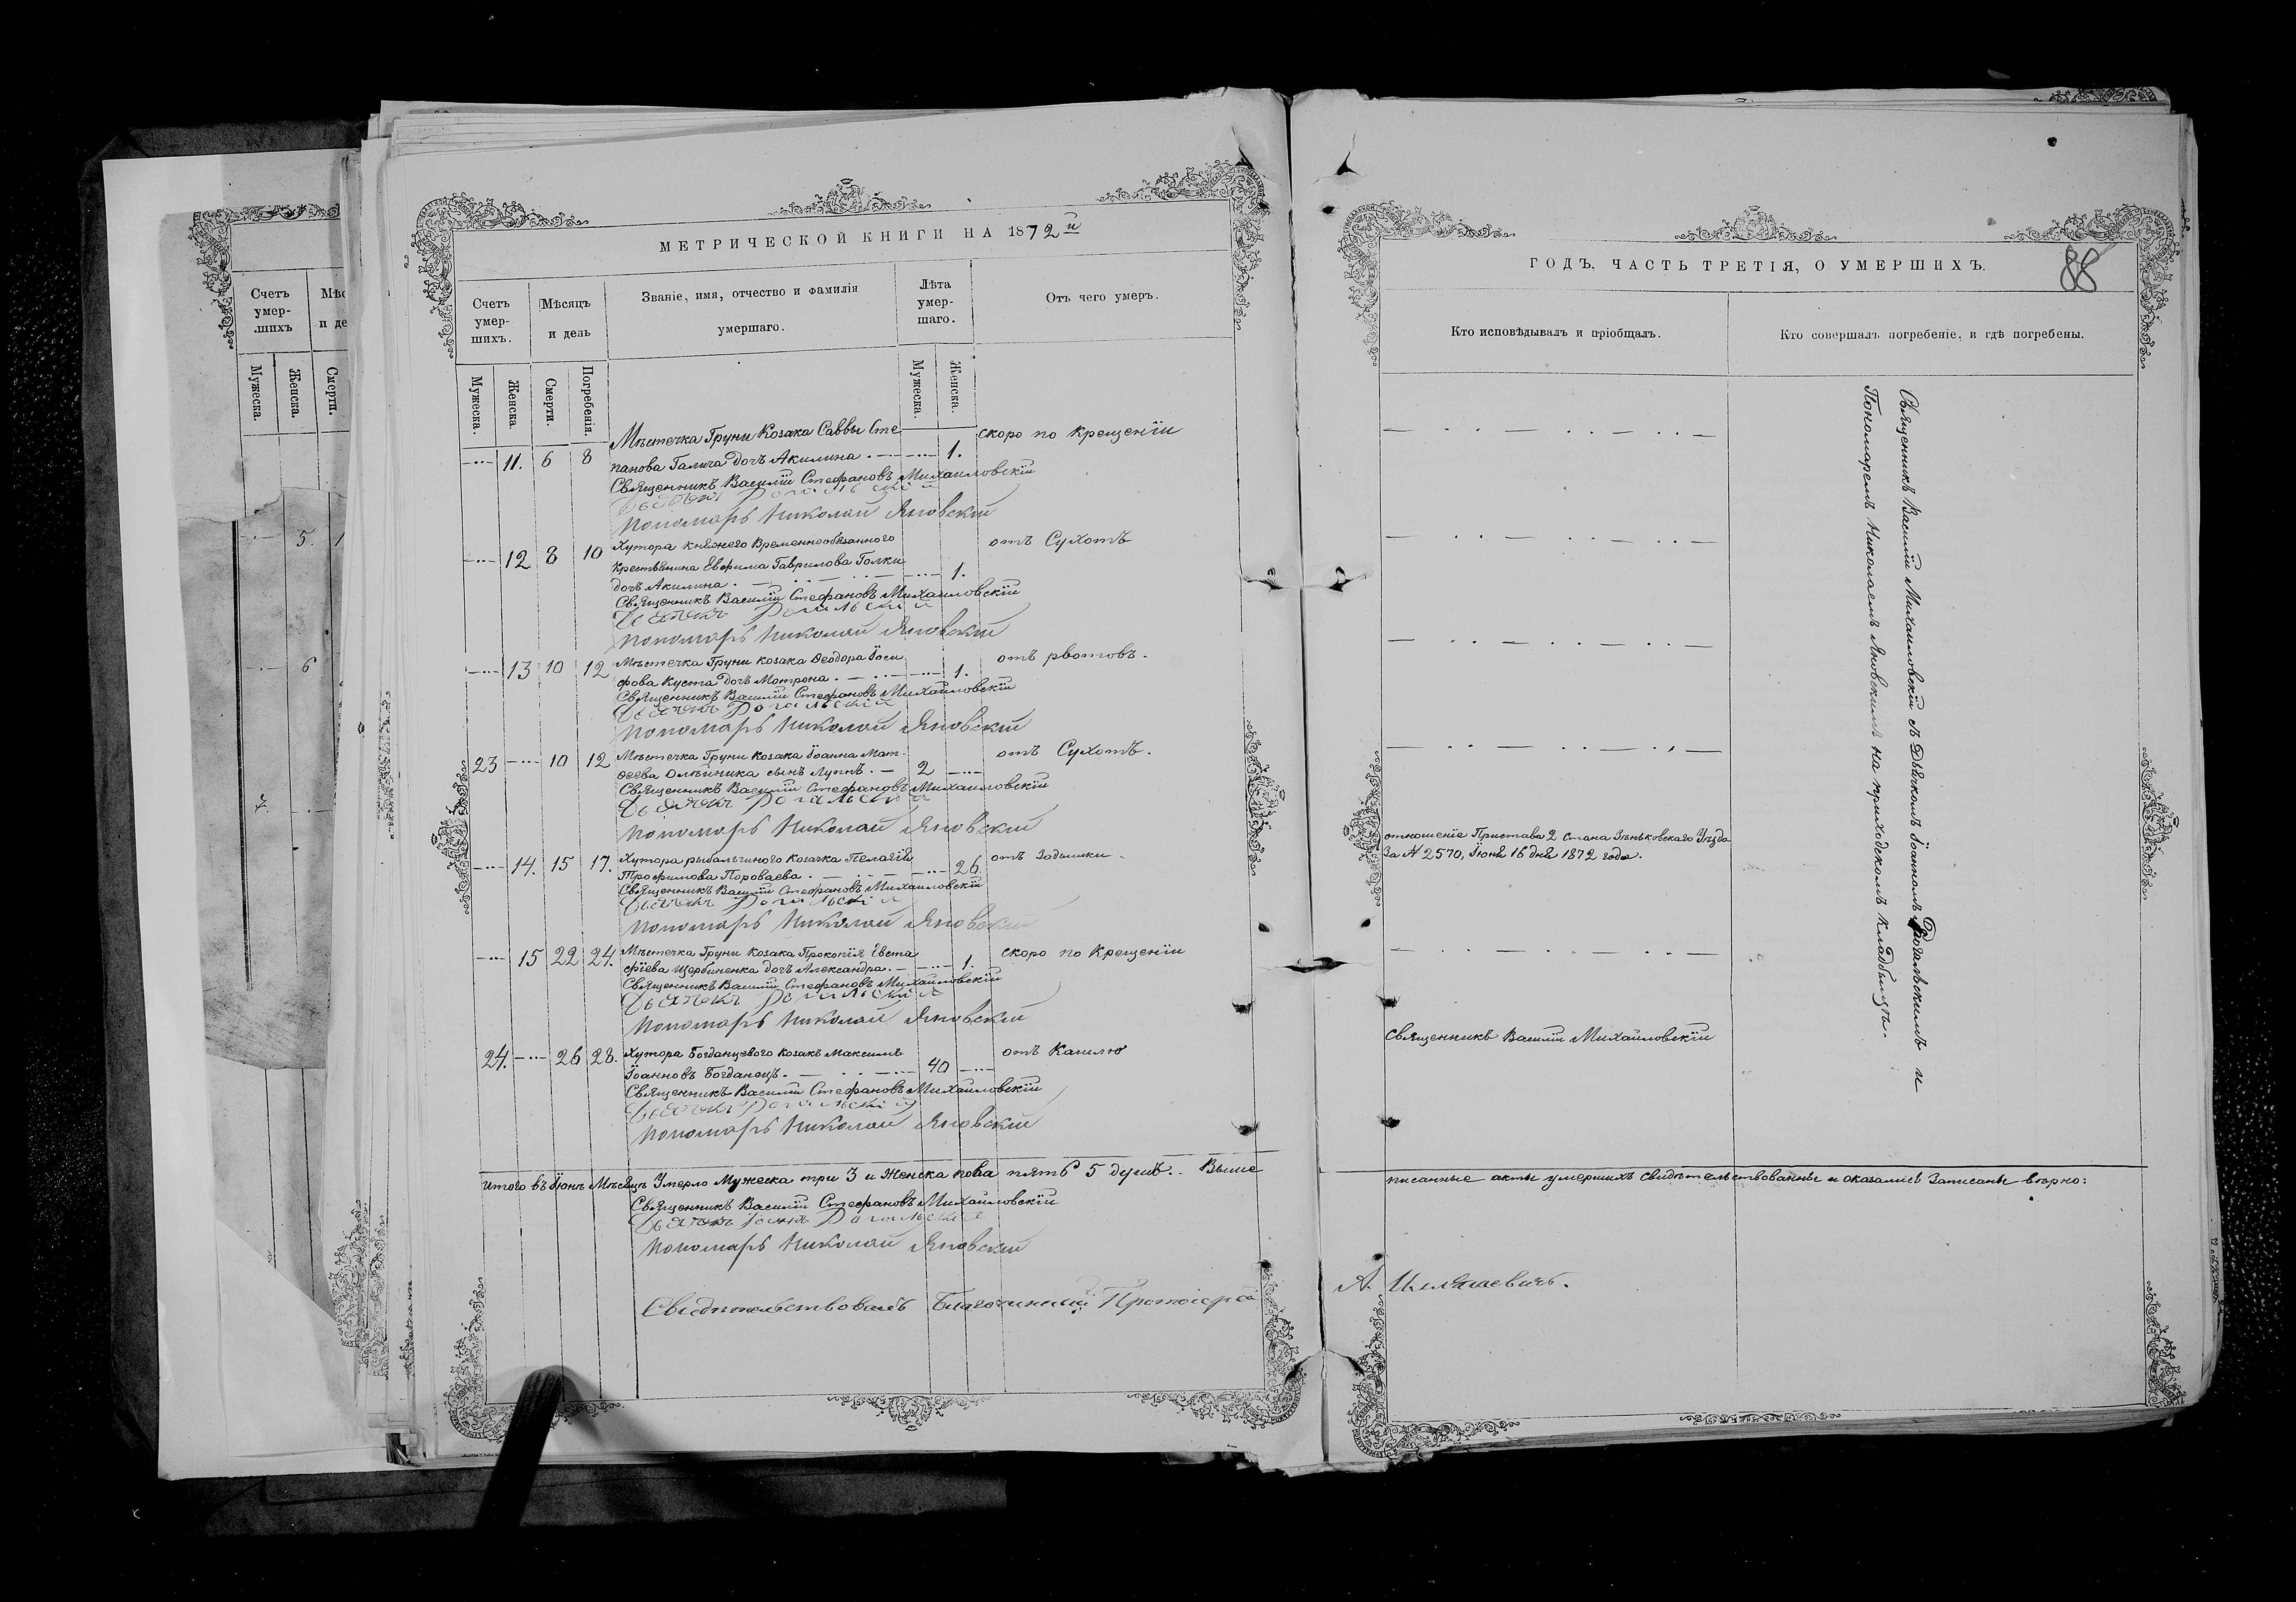 Счетъ
умер-
шихъ
Мѣс
и де
Мужеска.
Женска.
Смерти.
5
1
6
7
МЕТРИЧЕСКОЙ КНИГИ НА 1872й
Счетъ умер- шихъ.
Мѣсяцъ и день
Званіе, имя, отчество и фамилія умершаго.
Лѣта умер- шаго.
Отъ чего умеръ.
Мужеска.
Женска.
Смерти.
Погребенія.
Мужеска.
Женска.
Мѣстечка Груни Козака Саввы Сте-
скоро по Крещеніи
11. 6 8 панова Галича дочь Акилина. 1.
Священникъ Василій Стефановъ Михайловскій
Дьячекъ Рогальскій
Пономарь Николай Яновскій
12 8 10 Хутора Княжего Временнообязанного
отъ Сухотъ
Крестьянина Евфима Гаврилова Голки
дочь Акилина. 1.
Священникъ Василій Стефановъ Михайловскій
Дьячекъ Рогальскій
Пономарь Николай Яновскій
13 10 12 Мѣстечка Груни козака Ѳеодора Іоси
отъ рвотовъ.
фова Куста дочь Мотрона. 1.
Священникъ Василій Стефановъ Михайловскій
Дьячекъ Рогальскій
Пономарь Николай Яновскій
23 10 12 Мѣстечка Груни козака Іоанна Мат-
отъ Сухотъ.
ѳеева Олѣйника сынъ Луппъ. 2
Священникъ Василій Стефановъ Михайловскій
Дьячекъ Рогальскій
Пономарь Николай Яновскій
14. 15 17. Хутора рыбальчиного козачка Пелагія
отъ Задышки.
Трофимова Пороваева. 26
Священникъ Василій Стефановъ Михайловскій
Дьячекъ Рогальскій
Пономарь Николай Яновскій
15 22 24. Мѣстечка Груни козака Прокопія Евста
скоро по Крещеніи
фіева Щербиненка дочь Александра. 1.
Священникъ Василій Стефановъ Михайловскій
Дьячекъ Рогальскій
Пономарь Николай Яновскій
24. 26 28. Хутора Богданцевого козакъ Максимъ
отъ Кашлю
Іоанновъ Богданецъ. 40
Священникъ Василій Стефановъ Михайловскій
Дьячекъ Рогальскій
Пономарь Николай Яновскій
Итого въ Іюнѣ Мѣсяцѣ Умерло Мужеска три 3 и Женска пола пять 5 душъ. Выше
Священникъ Василій Стефановъ Михайловскій
Дьячекъ Іоаннъ Рогальскій
Пономарь Николай Яновскій
Свидѣтельствовалъ Благочинный Протоіерей
ГОДЪ, ЧАСТЬ ТРЕТІЯ, О УМЕРШИХЪ.
88
Кто исповѣдывалъ и пріобщалъ.
Кто совершалъ погребеніе, и гдѣ погребены.
отношеніе Пристава 2 стана Зѣньковскаго Уѣзда
За № 2570, Іюня 16 дня 1872 года.
Священникъ Василій Михайловскій
Священникъ Василій Михайловскій съ Дьячкомъ Іоанномъ Рогальскимъ и
Пономаремъ Николаемъ Яновскимъ на приходскомъ кладбищѣ.
писанные акты умершихъ свидѣтельствованы и оказались Записаны вѣрно:
А. Ильяшевичъ.